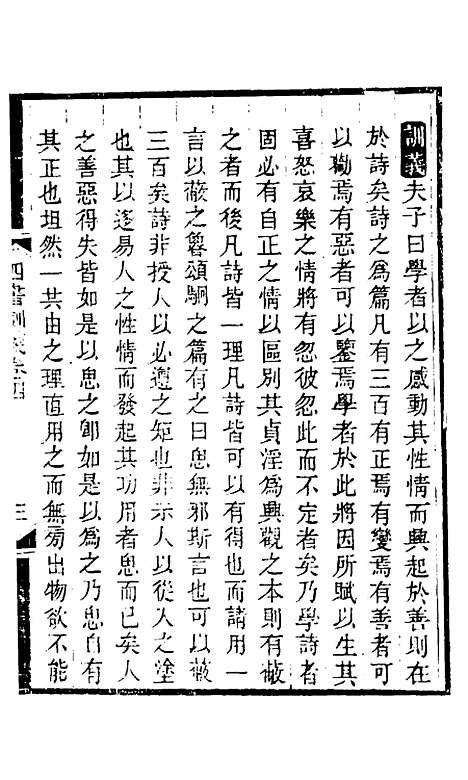 訓義夫子曰學者以之感動其性情而興起於善則在
於詩矣詩之爲篇凡有三百有正焉有變焉有善者可
以勸焉有惡者可以鑒焉學者於此將因所賦以生其
喜怒哀樂之情將有忽彼忽此而不定者矣乃學詩者
固必有自正之情以區別其貞淫爲興觀之本則有蔽
之者而後凡詩皆一理凡詩皆可以有得也而請用一
言以蔽之魯頌駉之篇有之曰思無邪斯言也可以蔽
三百矣詩非授人以必遵之矩也非示人以從入之塗
也其以迻易人之性情而發起其功用者思而已矣人
之善惡得失皆如是以思之卽如是以爲之乃思自有
其正也坦然一共由之理直用之而無旁出物欲不能
四書訓義卷四
三